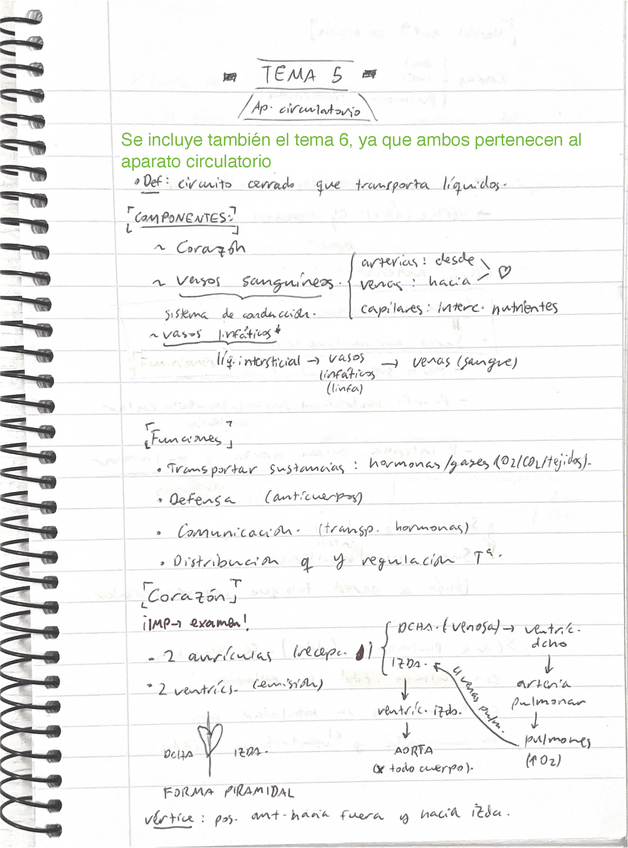 TEMA 5
Ap. circulatorio
Se incluye también el tema 6, ya que ambos pertenecen al
aparato circulatorio
• Def: circuito cerrado que transporta líquidos.
COMPONENTES:
~ Corazón
~ vasos sanguíneos.
arterias: desde
venas: hacia
capilares: interc. nutrientes
sistema de conducción.
~ vasos linfáticos
líq. intersticial → vasos → venas (sangre)
linfáticos
(linfa)
Funciones
• Transportar sustancias: hormonas/gases (O2/CO2/tejidos).
• Defensa (anticuerpos)
• Comunicación. (transp. hormonas)
• Distribución q y regulación Tª.
Corazón
¡IMP→ examen!
- 2 aurículas (recepc.)
DCHA. (venosa) → ventríc.
dcho
IZDA.
4 venas pulm.
arteria
pulmonar
pulmones
(↑O2)
• 2 ventrícs. (emisión)
ventríc. izdo.
AORTA
(x todo cuerpo).
DCHA IZDA.
FORMA PIRAMIDAL
vértice: pos. ant. hacia fuera y hacia izda.